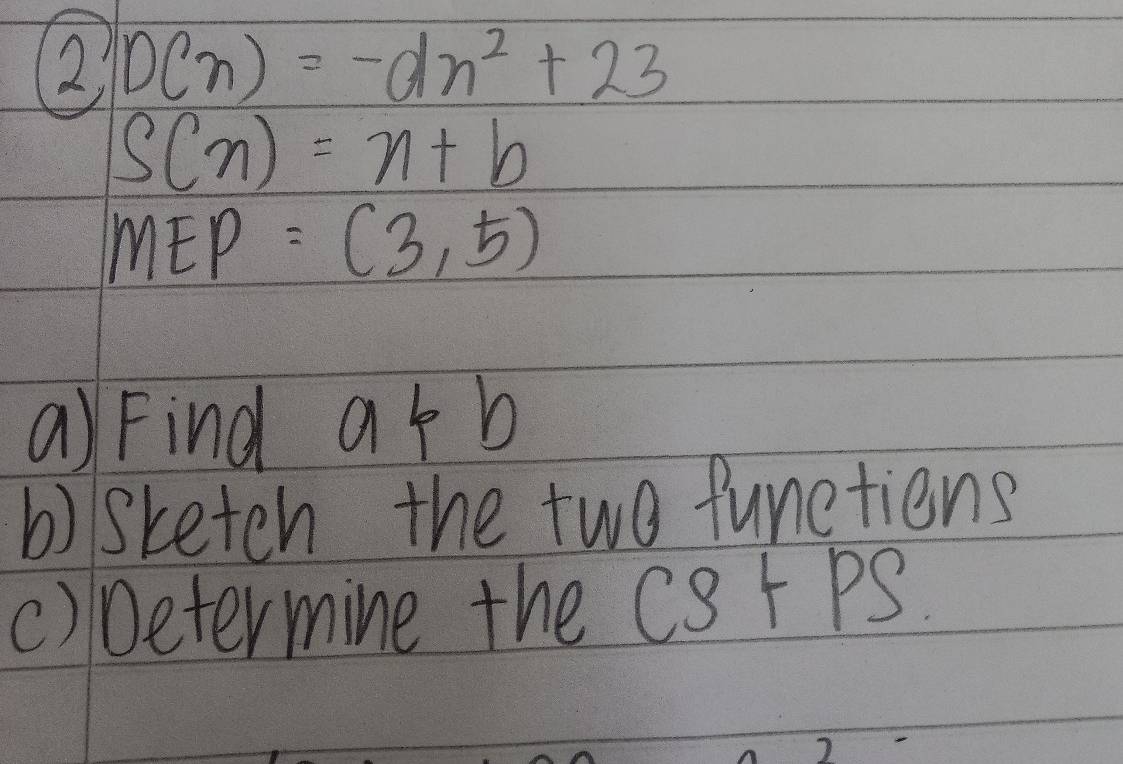 ② D(x) = -dx² + 23
S(x) = x + b
MEP = (3,5)
a) Find a & b
b) Sketch the two functions
c) Determine the CS & PS.